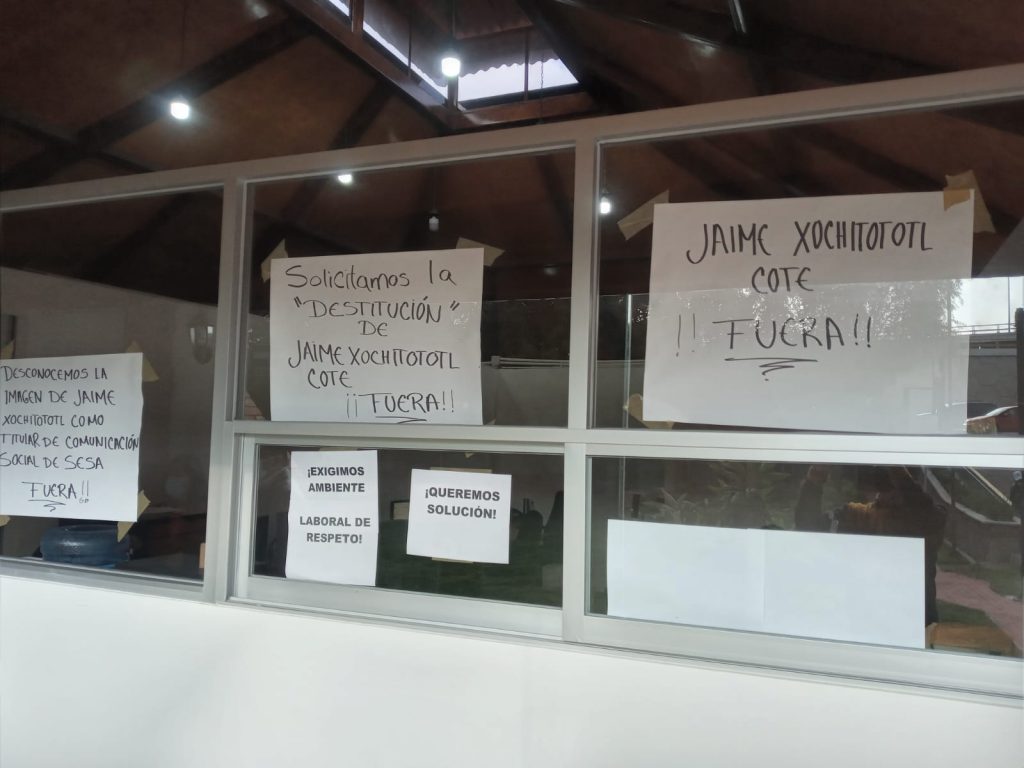 DESCONOCEMOS LA
IMAGEN DE JAIME
XOCHITOTOTL COMO
TITULAR DE COMUNICACIÓN
SOCIAL DE SESA
FUERA!!
Solicitamos la
"DESTITUCIÓN"
DE
JAIME XOCHITOTOTL
COTE
¡¡FUERA!!
JAIME XOCHITOTOTL
COTE
!! FUERA!!
¡EXIGIMOS
AMBIENTE
LABORAL DE
RESPETO!
¡QUEREMOS
SOLUCIÓN!